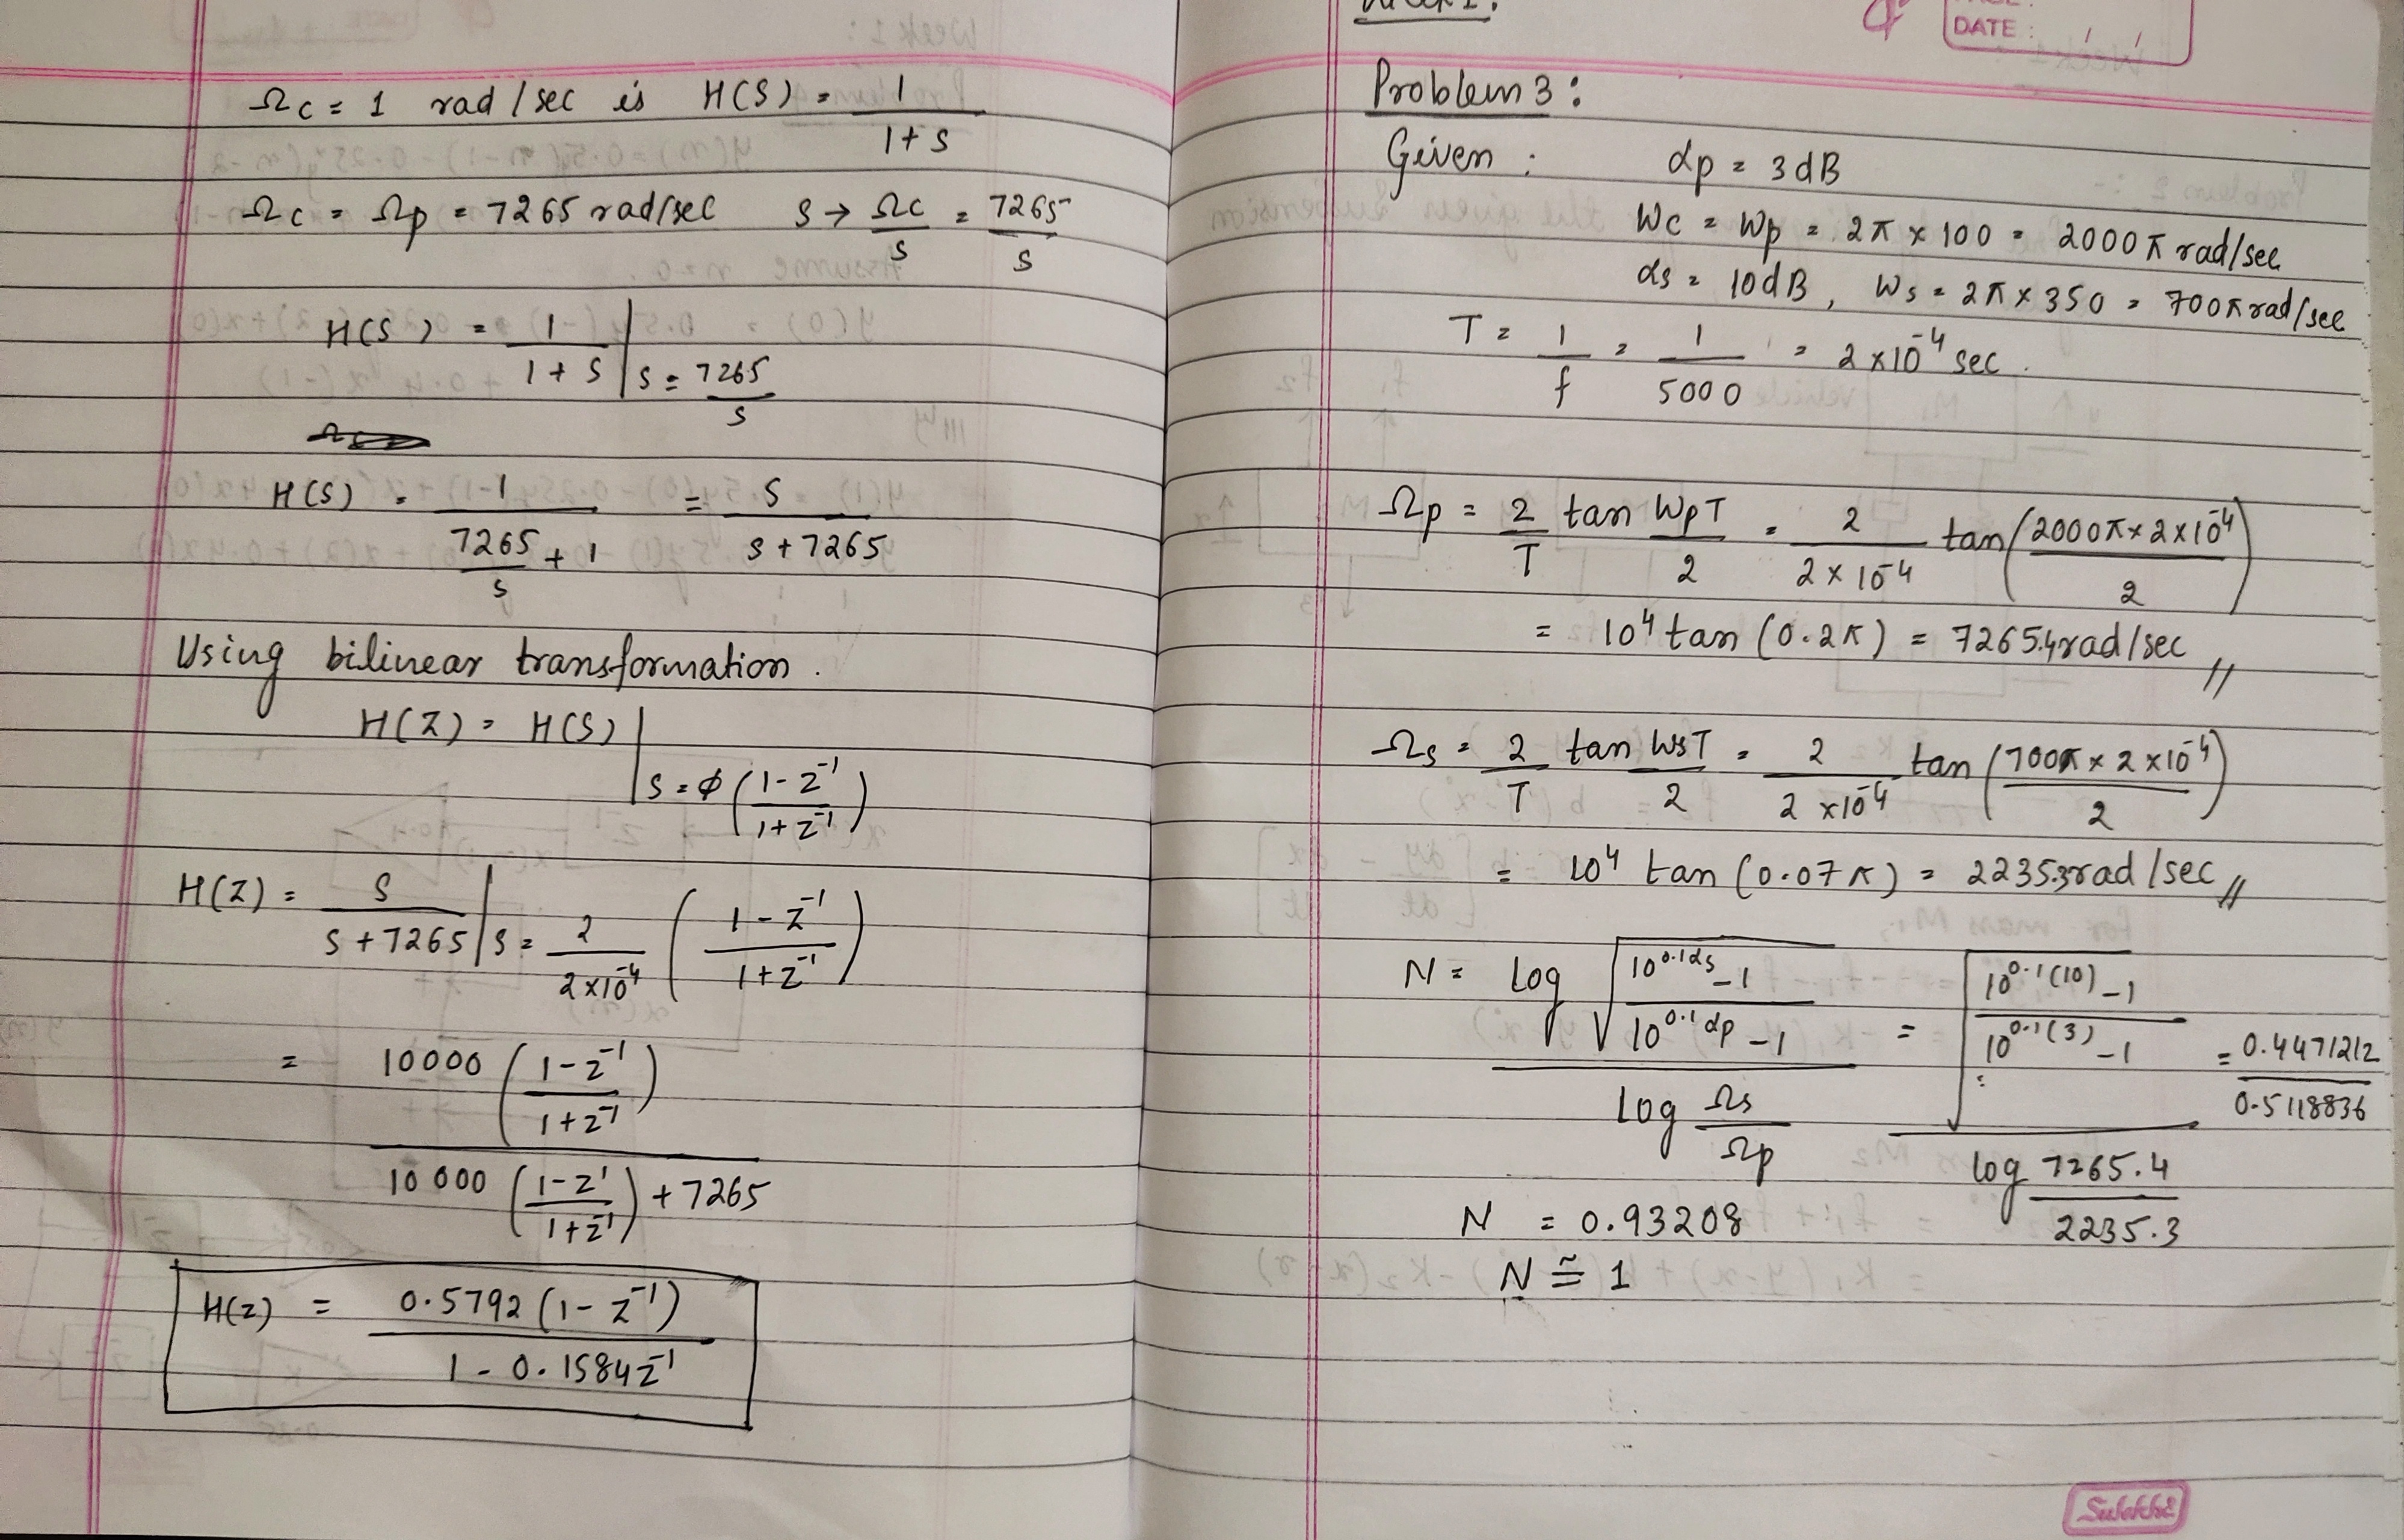 Ωc = 1 rad/sec is H(S) = 1 / (1 + S)
Ωc = Ωp = 7265 rad/sec   S → Ωc / S = 7265 / S
H(S) = 1 / (1 + S) | S = 7265 / S
H(S) = 1 / (7265 / S + 1) = S / (S + 7265)
Using bilinear transformation.
H(Z) = H(S) | S = ϕ ((1 - Z⁻¹) / (1 + Z⁻¹))
H(Z) = S / (S + 7265) | S = 2 / (2 × 10⁻⁴) ((1 - Z⁻¹) / (1 + Z⁻¹))
= 10000 ((1 - Z⁻¹) / (1 + Z⁻¹)) / (10000 ((1 - Z¹) / (1 + Z⁻¹)) + 7265)
H(Z) = 0.5792 (1 - Z⁻¹) / (1 - 0.1584 Z⁻¹)
DATE : / /
Problem 3 :
Given : αp = 3dB
Wc = Wp = 2π × 100 = 2000π rad/sec
αs = 10dB, Ws = 2π × 350 = 700π rad/sec
T = 1 / f = 1 / 5000 = 2 × 10⁻⁴ sec.
Ωp = 2 / T tan WpT / 2 = 2 / (2 × 10⁻⁴) tan (2000π × 2 × 10⁻⁴ / 2)
= 10⁴ tan (0.2π) = 7265.4 rad/sec //
Ωs = 2 / T tan WsT / 2 = 2 / (2 × 10⁻⁴) tan (700π × 2 × 10⁻⁴ / 2)
= 10⁴ tan (0.07π) = 2235.3 rad/sec //
N = log √((10^0.1αs - 1) / (10^0.1αp - 1)) / log (Ωs / Ωp) = √((10^0.1(10) - 1) / (10^0.1(3) - 1)) / log (7265.4 / 2235.3) = 0.4471212 / 0.5118836
N = 0.93208
N ≅ 1
Sulekha